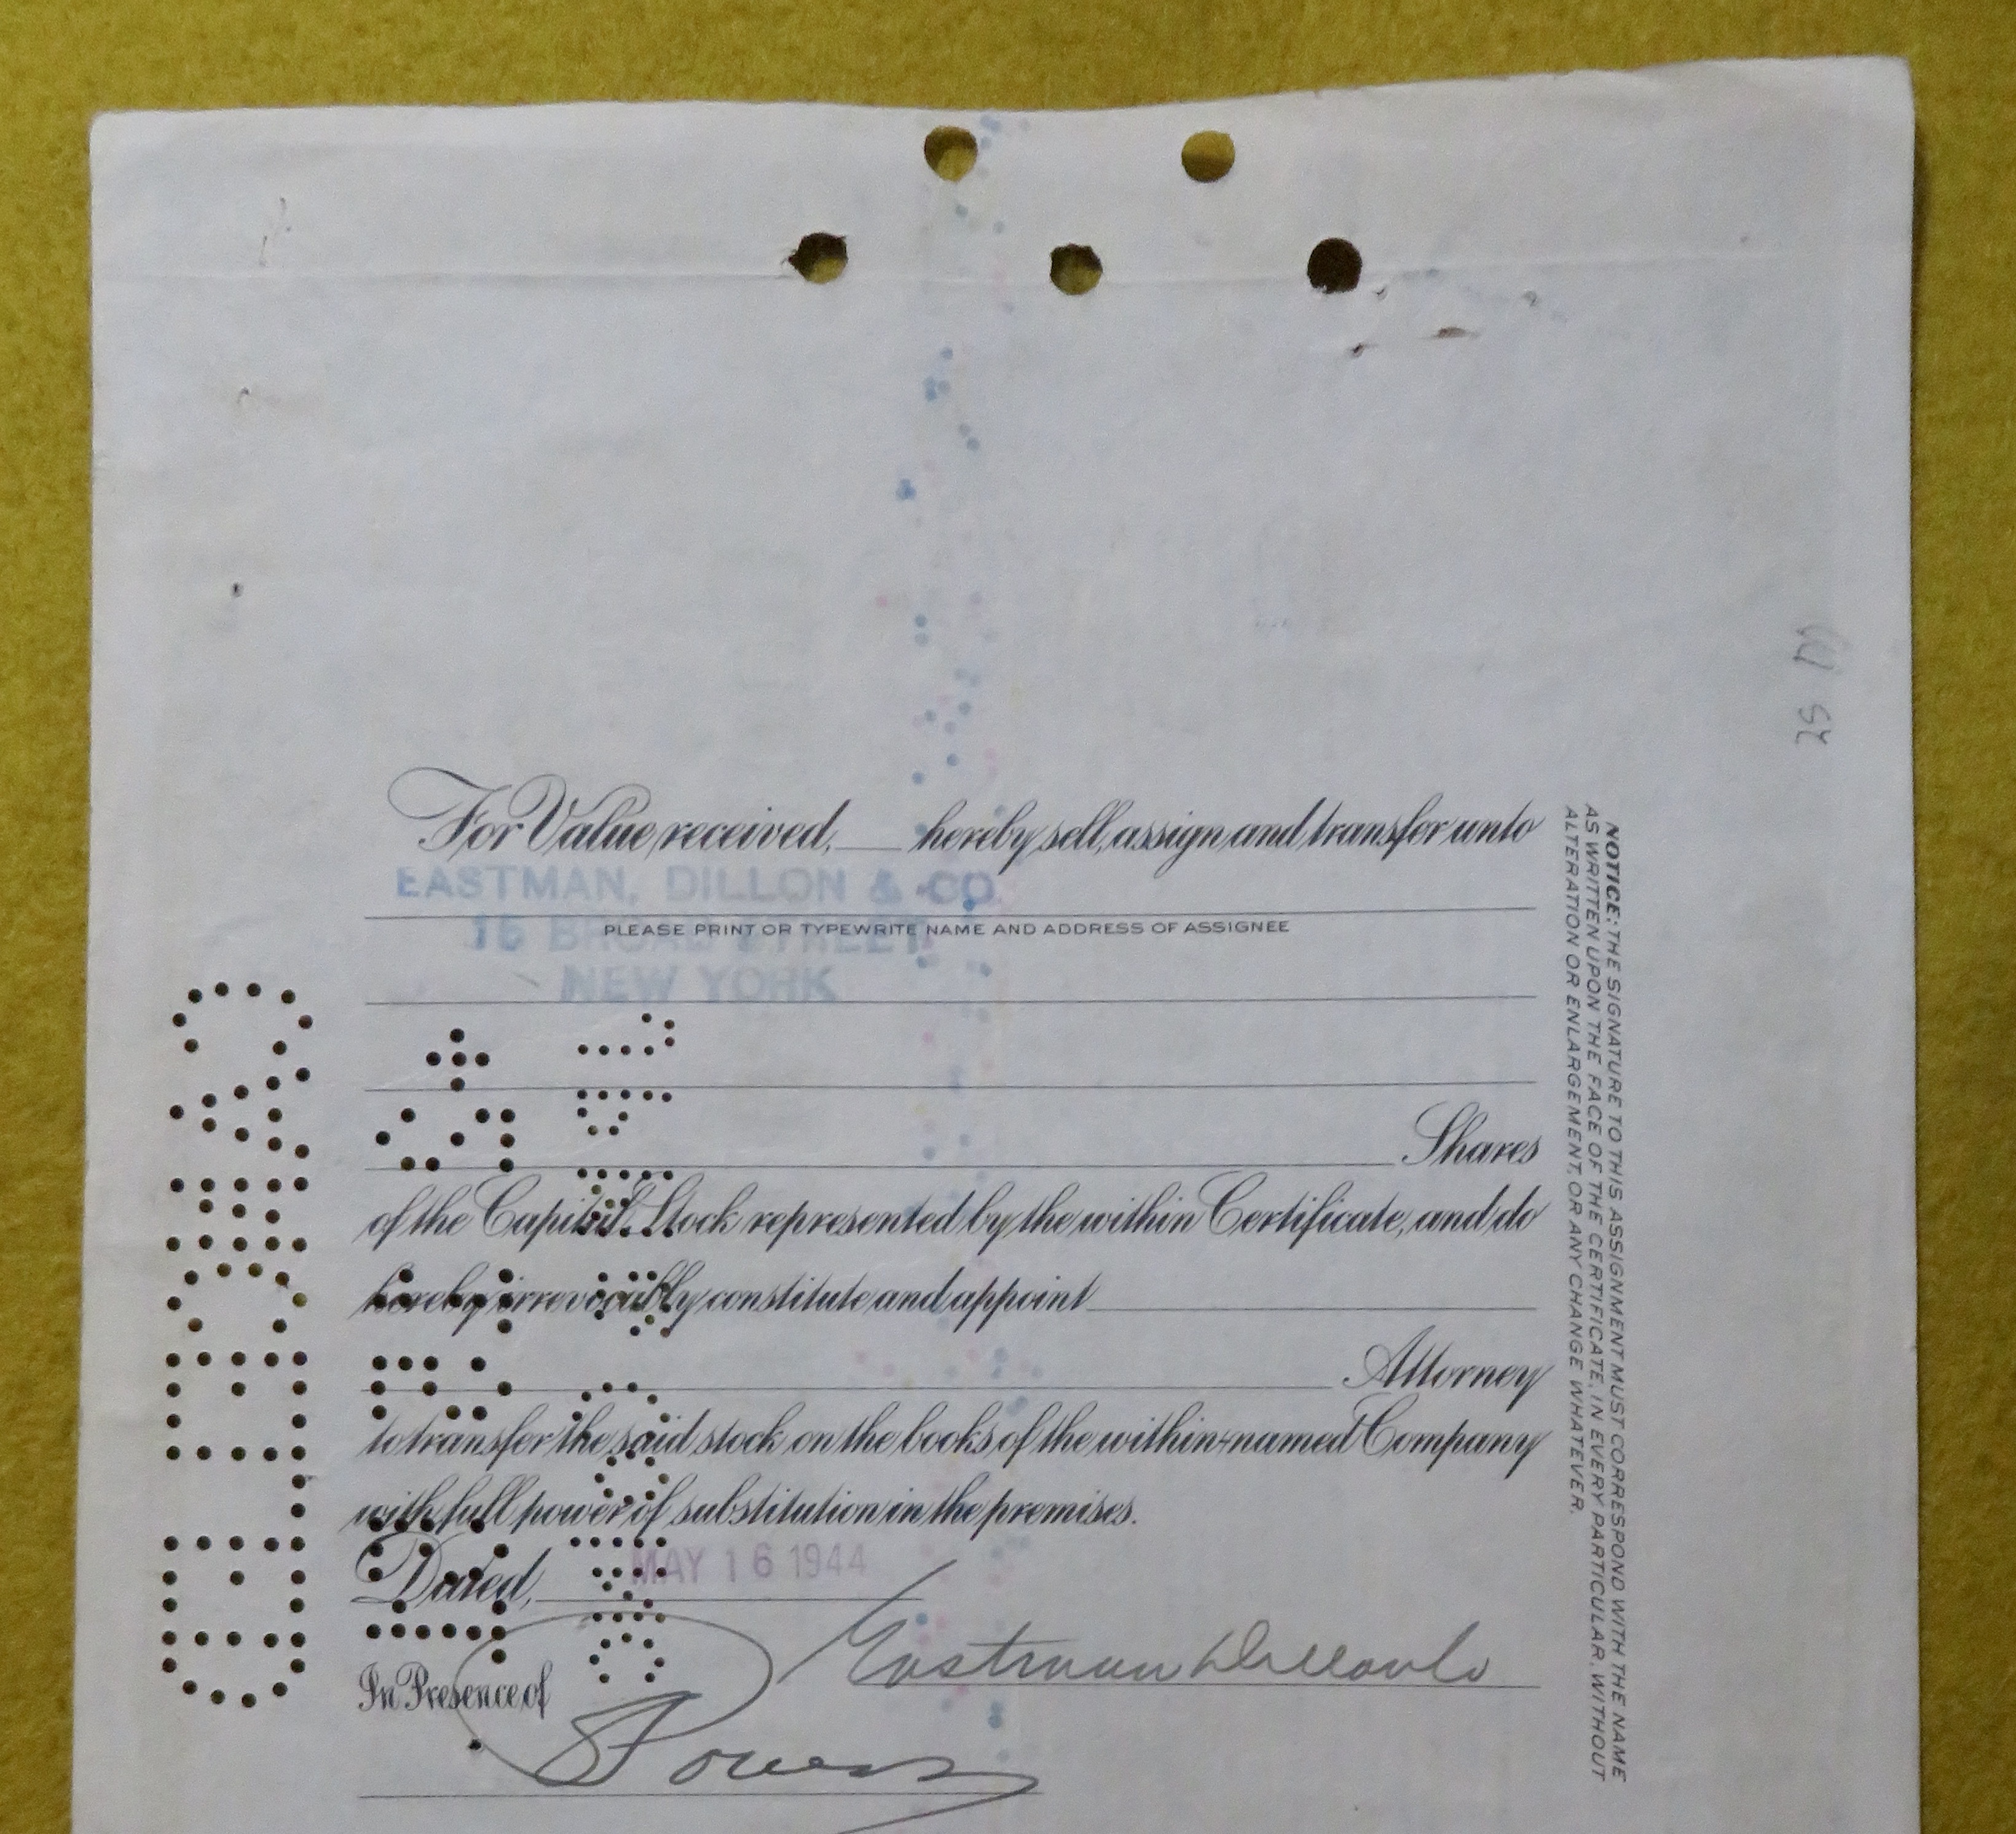 For Value received, ___ hereby sell, assign and transfer unto
EASTMAN, DILLON & CO.
PLEASE PRINT OR TYPEWRITE NAME AND ADDRESS OF ASSIGNEE
15 BROAD STREET
NEW YORK
Shares
of the Capital Stock represented by the within Certificate, and do
hereby irrevocably constitute and appoint
Attorney
to transfer the said stock on the books of the within-named Company
with full power of substitution in the premises.
Dated, MAY 16 1944
Eastman Dillon & Co
In Presence of
Powers
NOTICE: THE SIGNATURE TO THIS ASSIGNMENT MUST CORRESPOND WITH THE NAME
AS WRITTEN UPON THE FACE OF THE CERTIFICATE, IN EVERY PARTICULAR, WITHOUT
ALTERATION OR ENLARGEMENT, OR ANY CHANGE WHATEVER.
CANCELLED